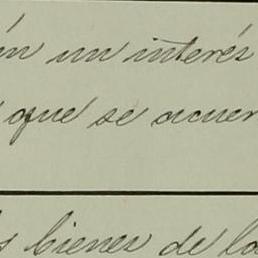 ún un interés
que se acuer
s bienes de la